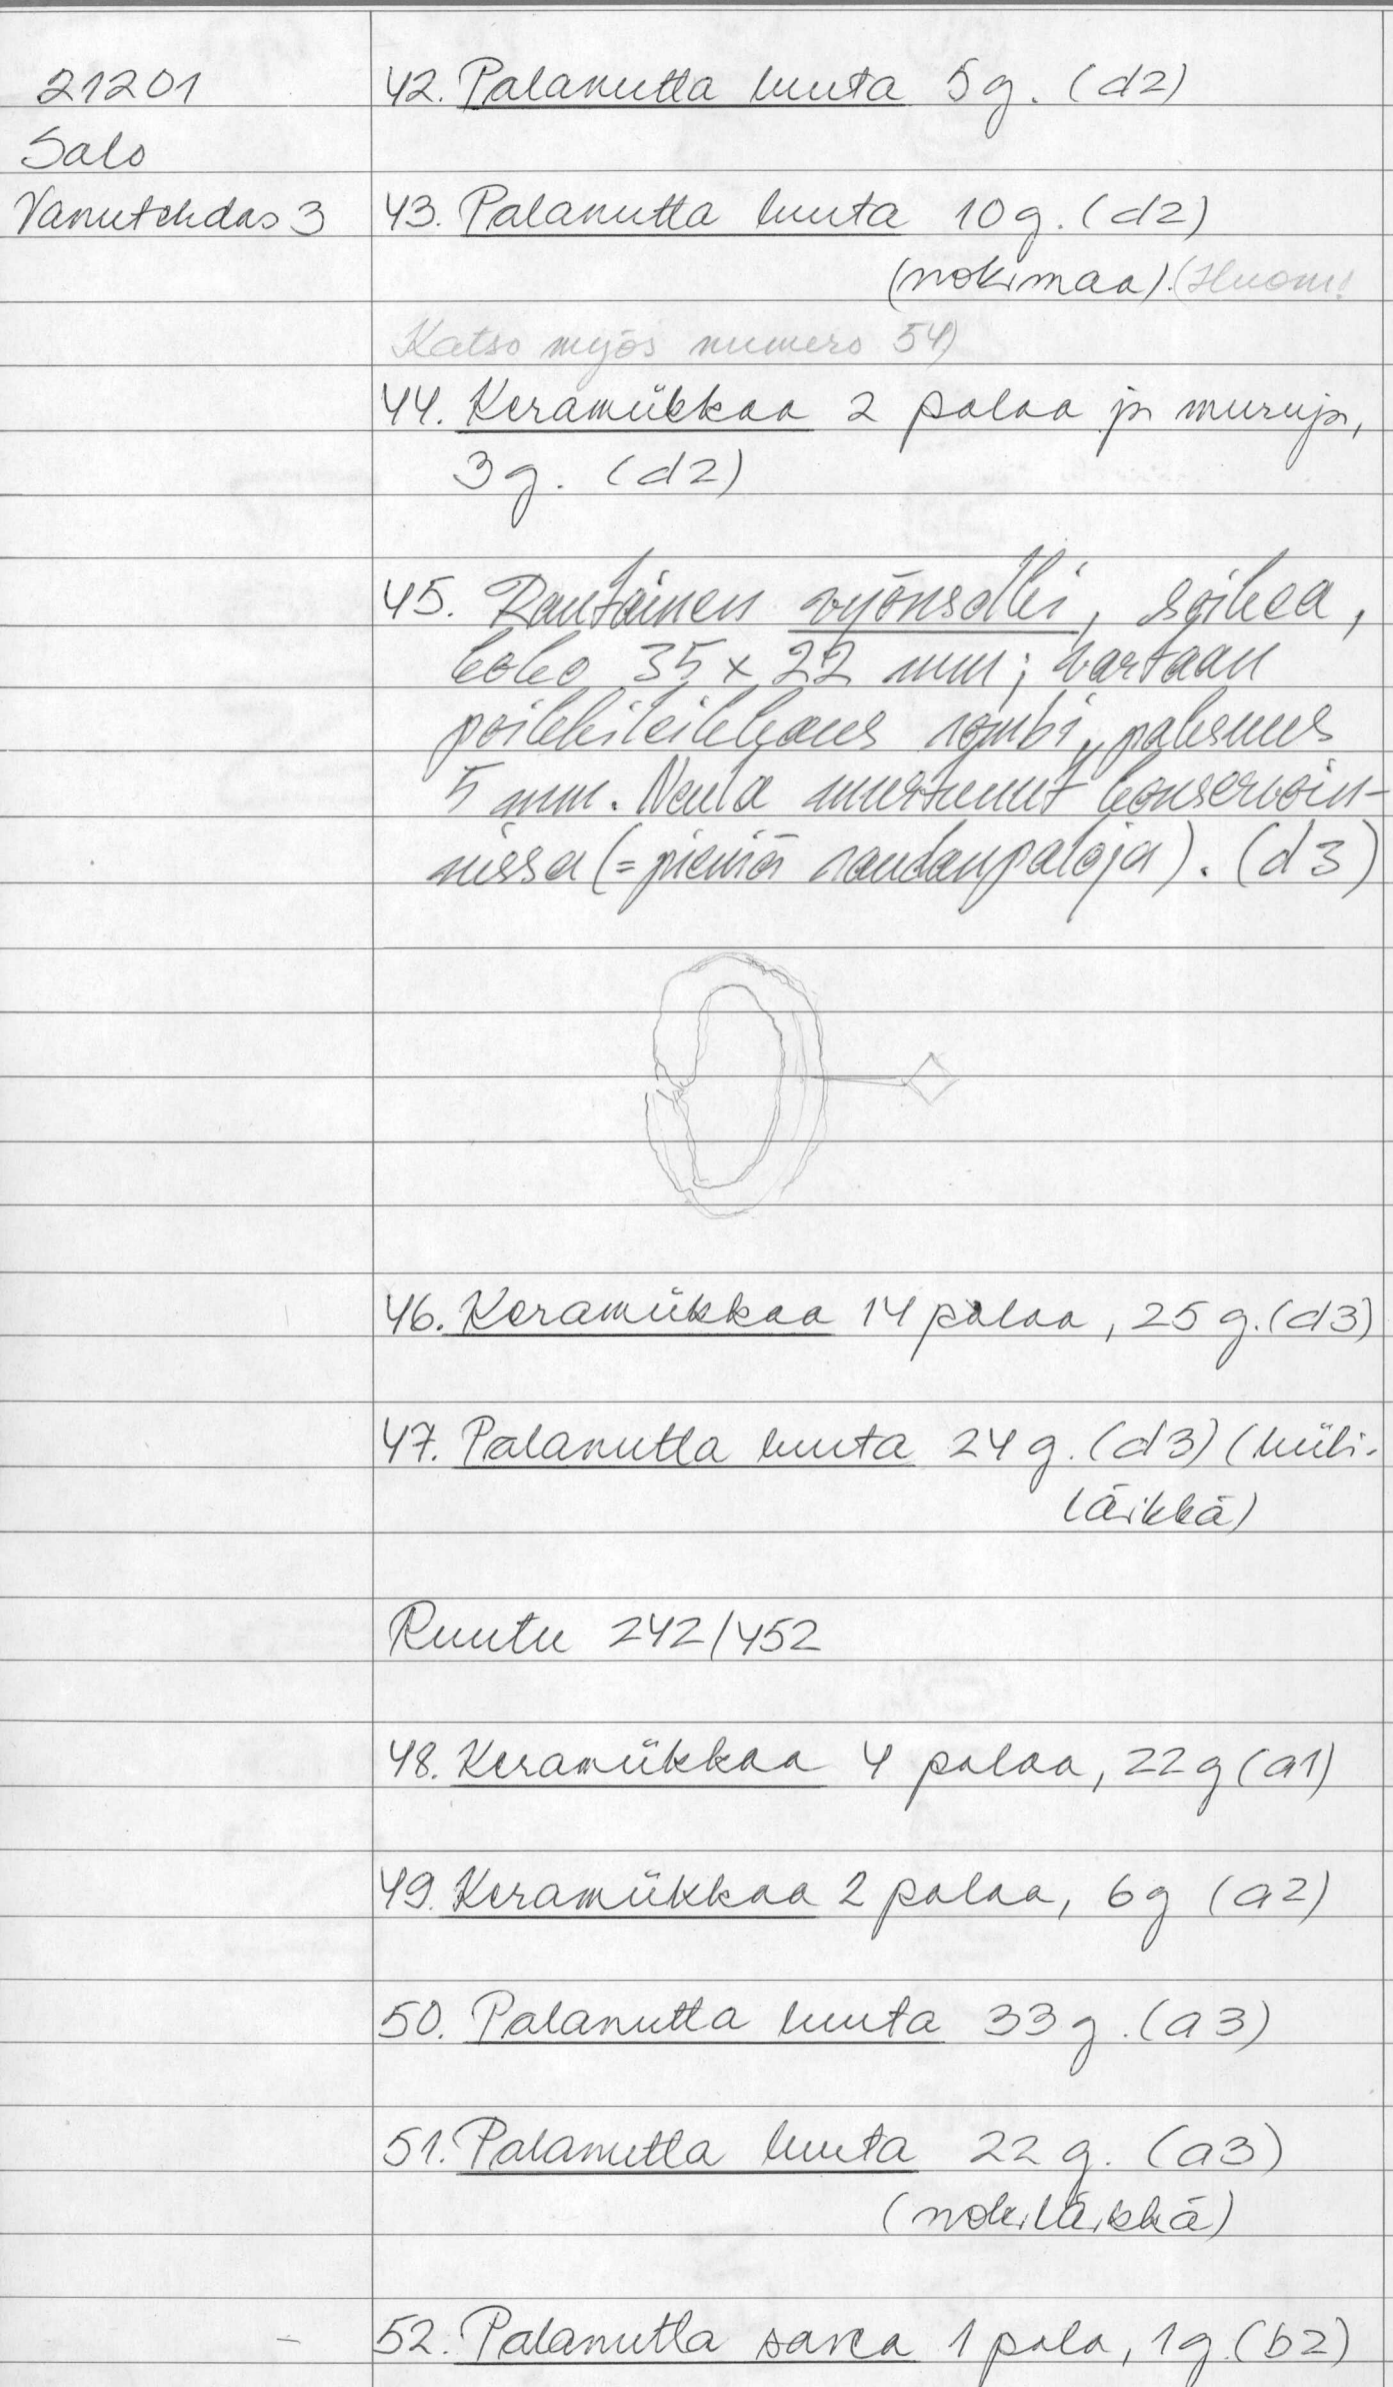 21201
Salo
Vanutehdas 3
42. Palanutta luuta 5 g. (d2)
43. Palanutta luuta 10 g. (d2)
(nokimaa). (Huom!
Katso myös numero 54)
44. Keramiikkaa 2 palaa ja muruja,
3 g. (d2)
45. Rautainen vyönsolki, soikea,
koko 35 x 22 mm; kartaan
poikkileikkaus rombi, paksuus
5 mm. Neula murtunut konservoin-
nissa (= pieniä raudanpaloja). (d3)
46. Keramiikkaa 14 palaa, 25 g. (d3)
47. Palanutta luuta 24 g. (d3) (hiili-
läikkä)
Ruutu 242/452
48. Keramiikkaa 4 palaa, 22 g (a1)
49. Keramiikkaa 2 palaa, 6 g (a2)
50. Palanutta luuta 33 g. (a3)
51. Palanutta luuta 22 g. (a3)
(nokiläikkä)
52. Palanutta savea 1 pala, 1 g. (b2)